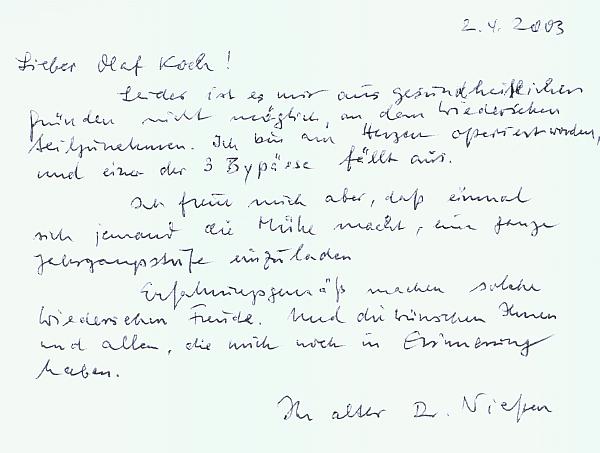 2.4.2003
Lieber Olaf Koch!
Leider ist es mir aus gesundheitlichen
Gründen nicht möglich, an dem Wiedersehen
teilzunehmen. Ich bin am Herzen operiert worden,
und einer der 3 Bypässe fällt aus.
Ich freue mich aber, daß einmal
sich jemand die Mühe macht, eine ganze
Jahrgangsstufe einzuladen
Erfahrungsgemäß machen solche
Wiedersehen Freude. Und die wünschen Ihnen
und allen, die mich noch in Erinnerung
haben.
Ihr alter Dr. Nießen